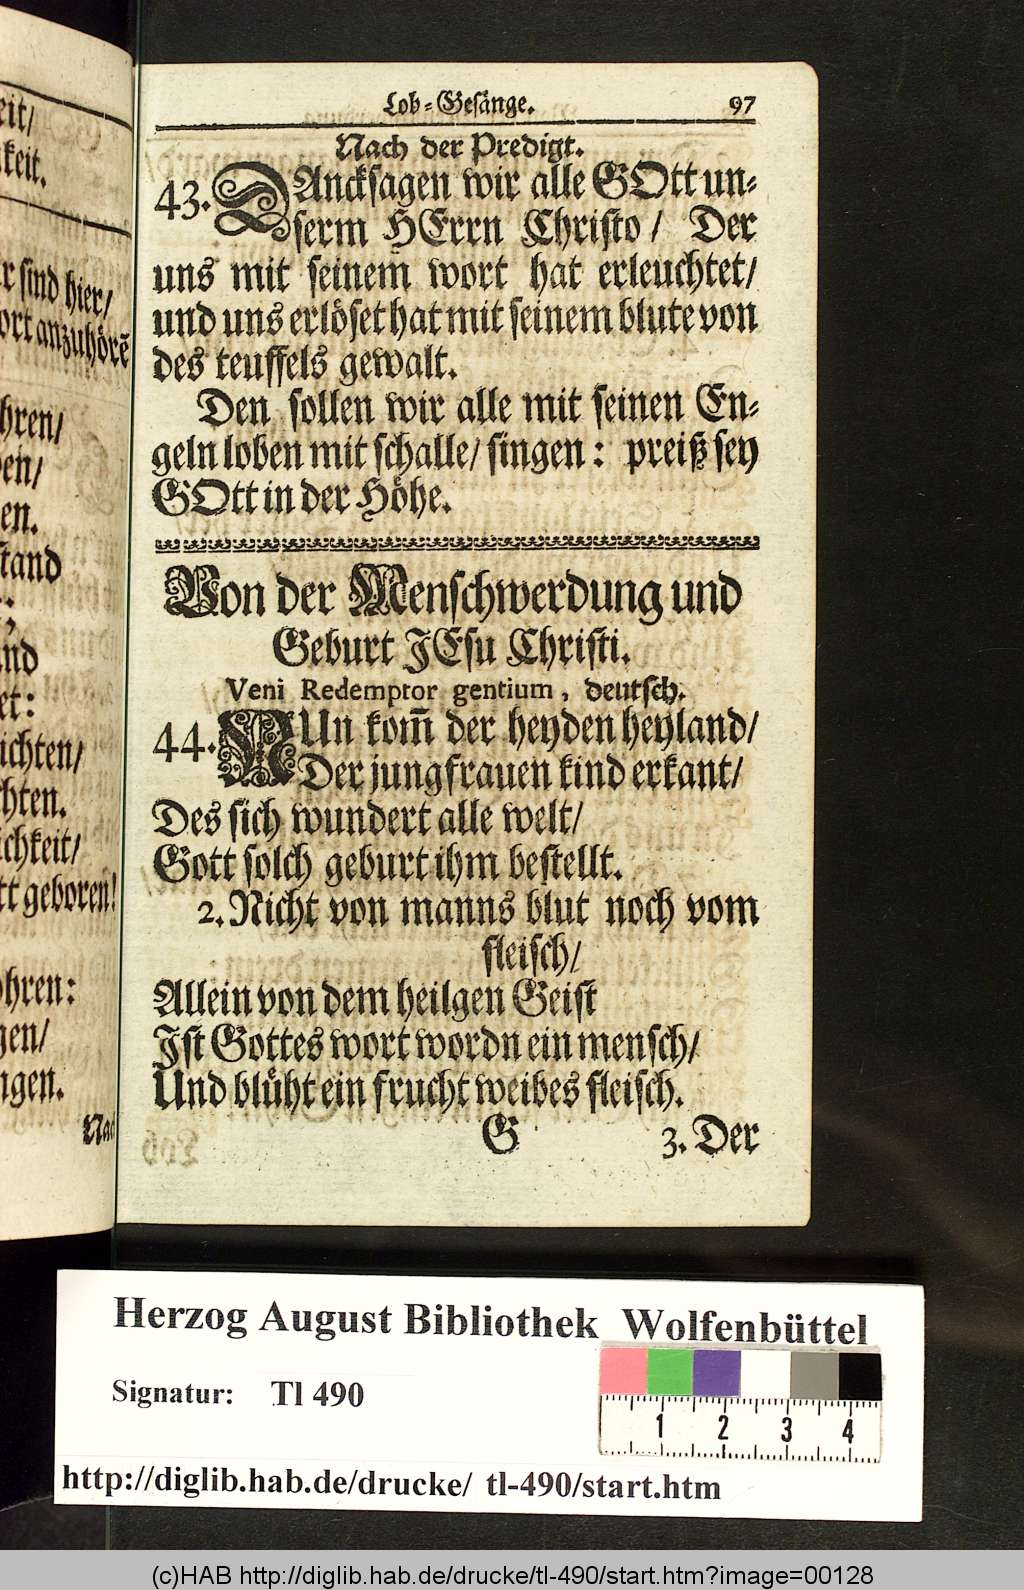 eit/
keit.
r sind hier/
ort anzuhörē
hren/
en/
en.
tand
nd
et:
ichten/
chten.
ichkeit/
tt geboren!
ohren:
gen/
ngen.
Nach
Lob-Gesänge. 97
Nach der Predigt.
43. DAncksagen wir alle GOtt un-
serm HErrn Christo / Der
uns mit seinem wort hat erleuchtet/
und uns erlöset hat mit seinem blute von
des teuffels gewalt.
Den sollen wir alle mit seinen En-
geln loben mit schalle/ singen: preiß sey
GOtt in der Höhe.
Von der Menschwerdung und
Geburt JEsu Christi.
Veni Redemptor gentium, deutsch.
44. NUn kom̄ der heyden heyland/
Der jungfrauen kind erkant/
Des sich wundert alle welt/
Gott solch geburt ihm bestellt.
2. Nicht von manns blut noch vom
fleisch/
Allein von dem heilgen Geist
Ist Gottes wort wordn ein mensch/
Und blüht ein frucht weibes fleisch.
G 3. Der
Herzog August Bibliothek Wolfenbüttel
Signatur: Tl 490
1 2 3 4
http://diglib.hab.de/drucke/ tl-490/start.htm
(c)HAB http://diglib.hab.de/drucke/tl-490/start.htm?image=00128